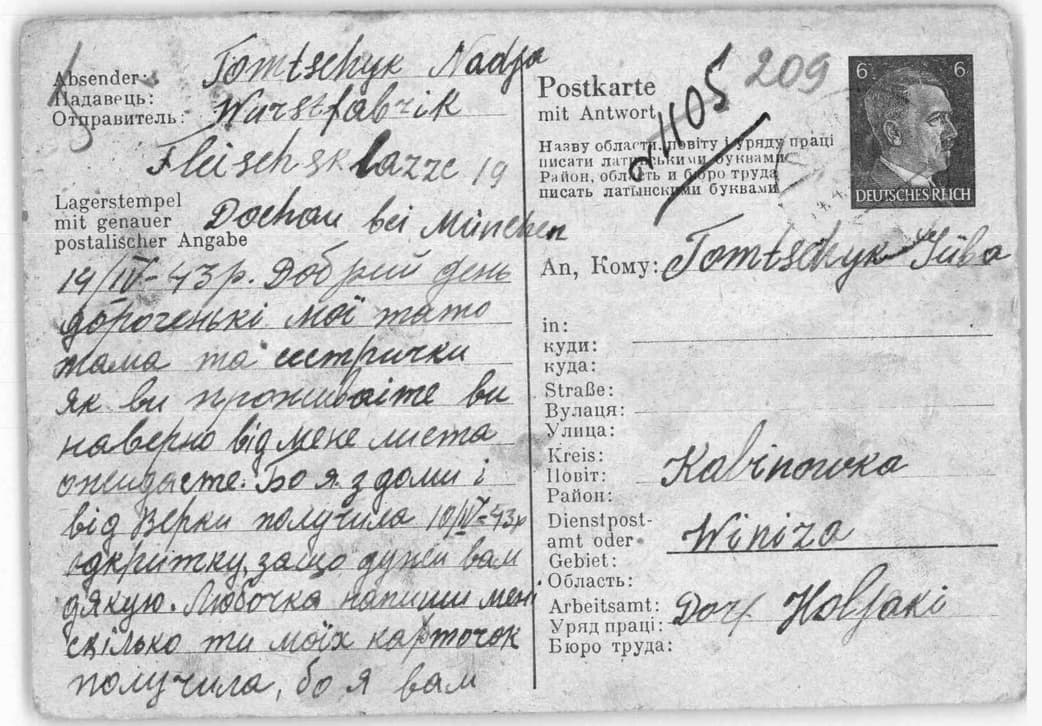 Absender: Tomtschyk Nadja
Надавець:
Отправитель: Wurstfabrik
Fleischsklazze 19
Lagerstempel
mit genauer
postalischer Angabe
Dochau bei München
19/IV-43 р. Добрий день
дороженькі мої тато
мама та сестрички
як ви проживаіте ви
наверно від мене листа
ожидаєте. Бо я з доми і
від Верки получила 10/IV-43р
одкритку, защо дужи вам
дякую. Любочка напиши мені
скілько ти моїх карточок
получила, бо я вам
Postkarte
mit Antwort
1105
209
6 6
DEUTSCHES REICH
Назву области, повіту і уряду праці
писати латинськими буквами
Район, область и бюро труда
писать латынскими буквами
An, Кому: Tomtschyk Lüba
in:
куди:
куда:
Straße:
Вулаця:
Улица:
Kreis:
Повіт:
Район:
Kabinowka
Dienstpost-
amt oder
Gebiet:
Область:
Winiza
Arbeitsamt:
Уряд праці:
Бюро труда:
Dorf Holjaki